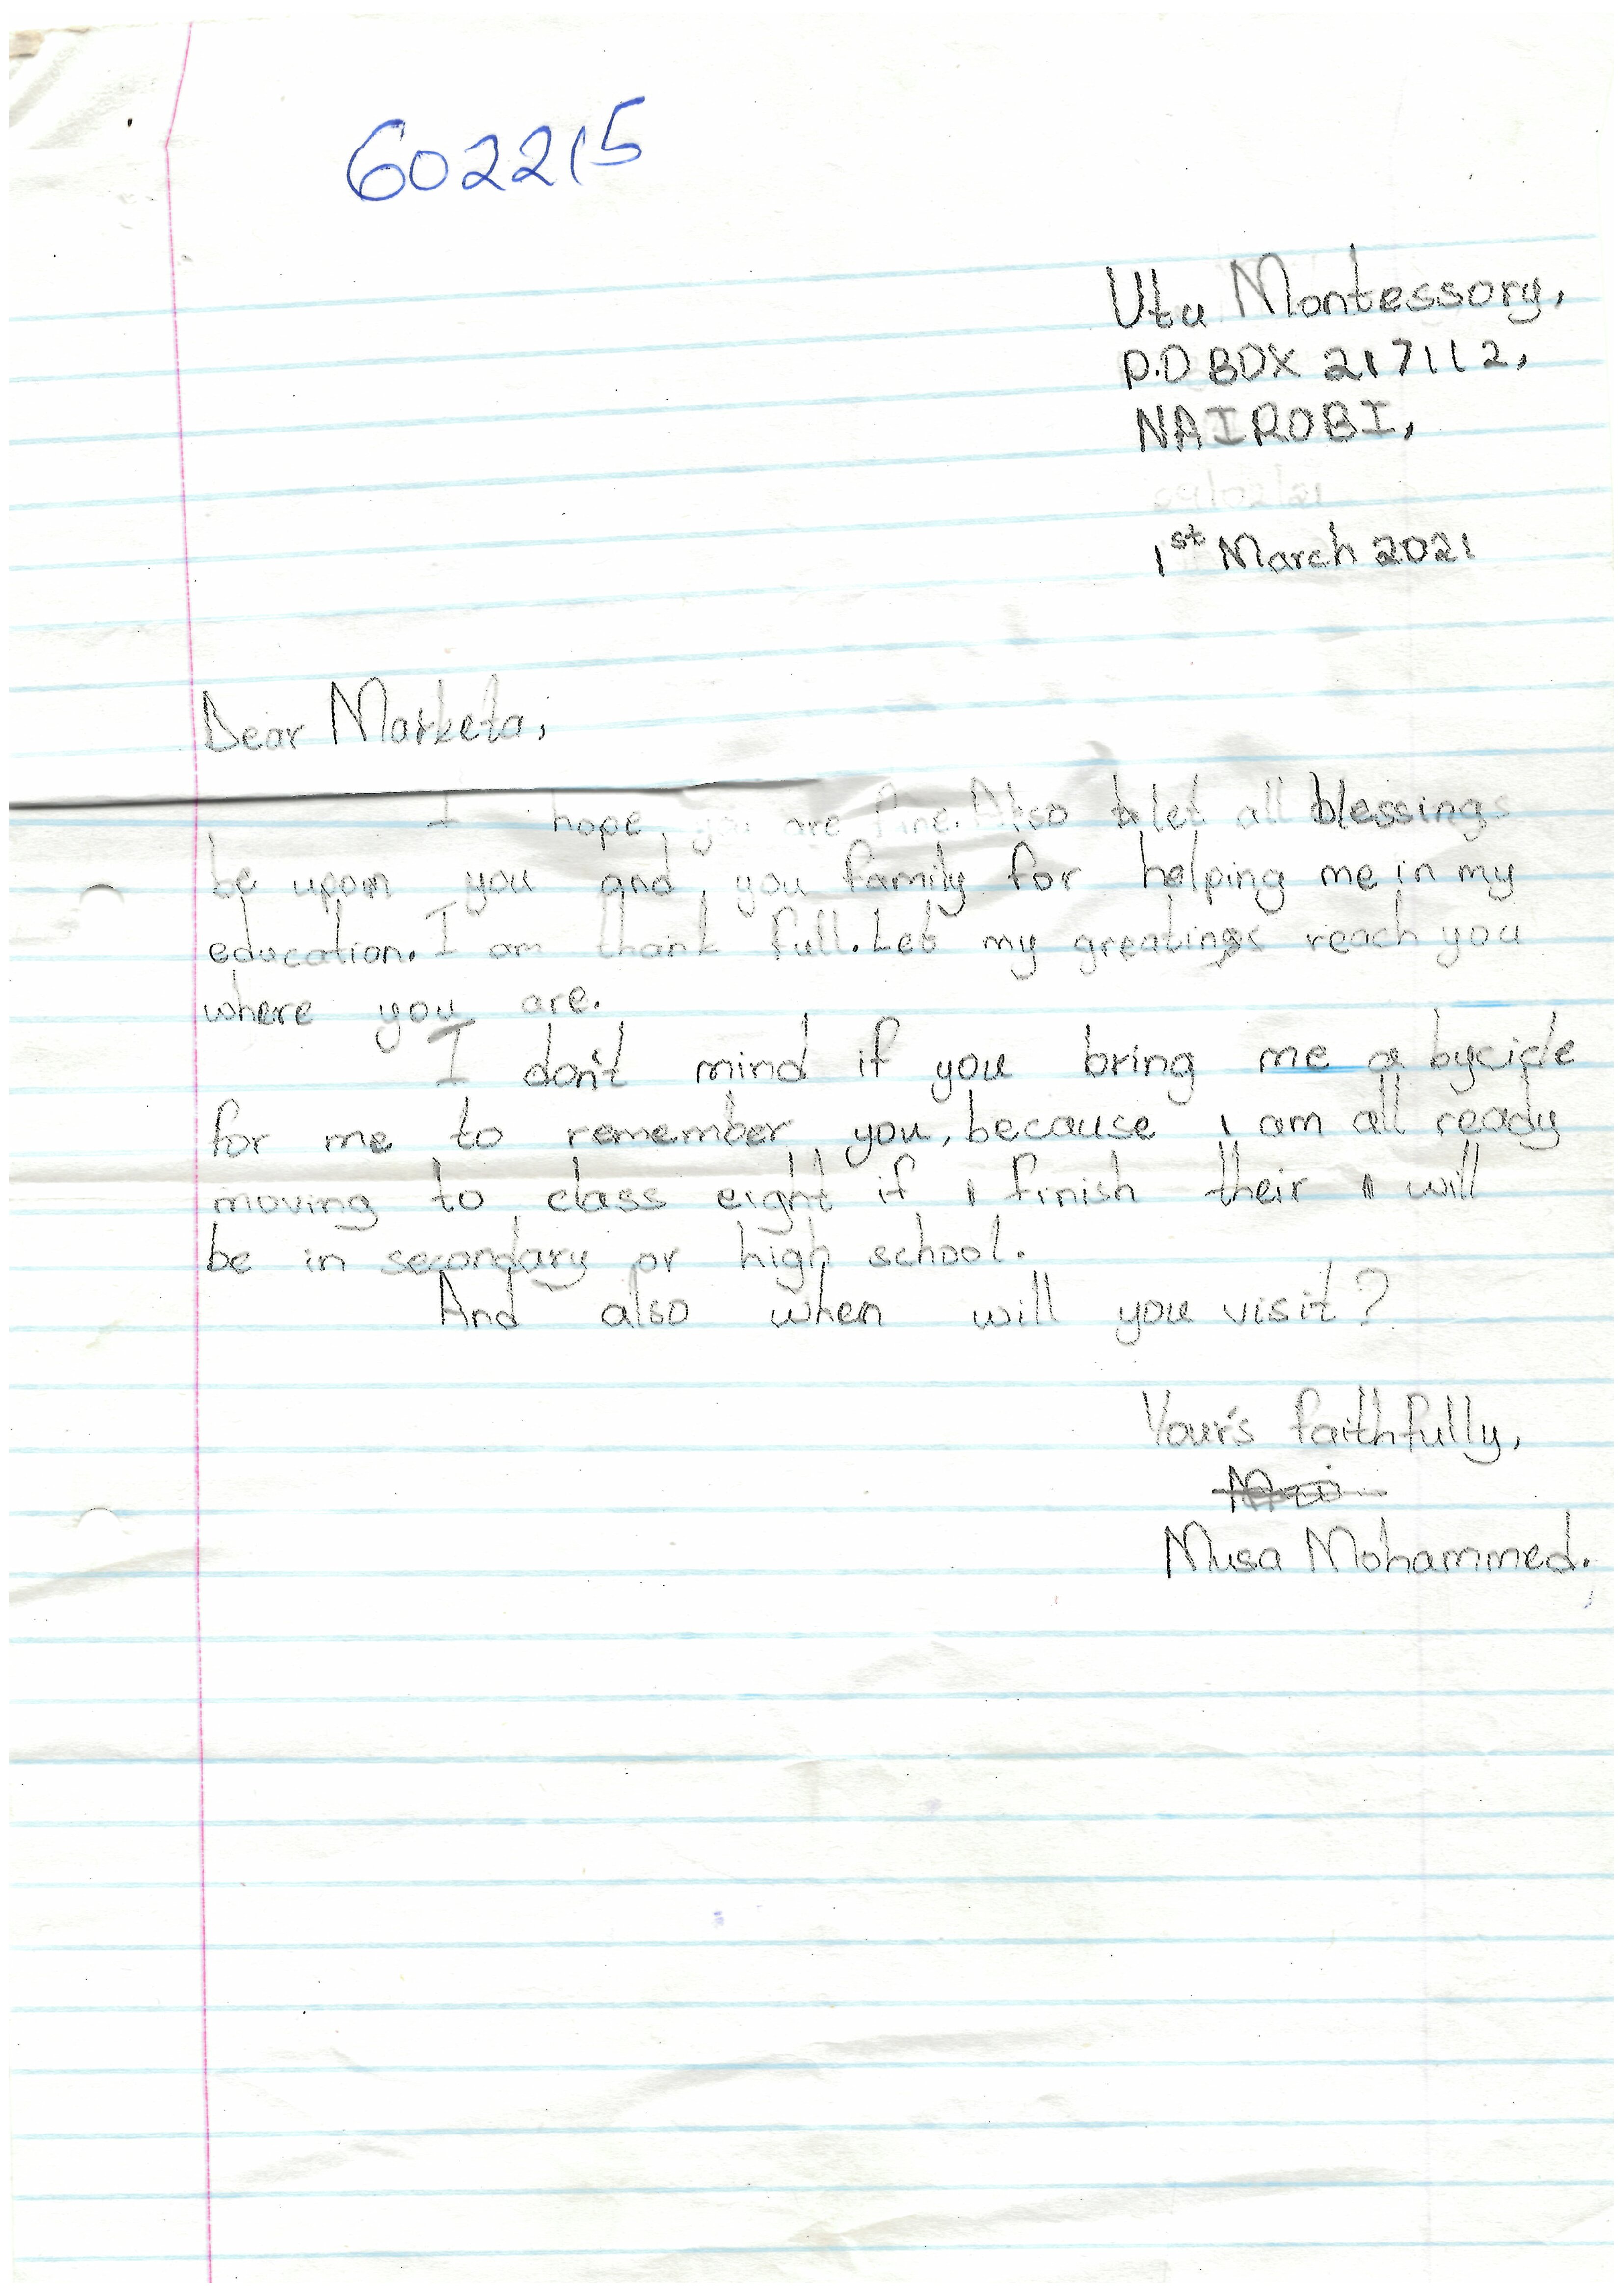 602215
Utu Montessory,
P.O BOX 217112,
NAIROBI,
09/02/21
1st March 2021
Dear Marketa,
I hope, you are fine. Also to let all blessings
be upon you and, you family for helping me in my
education. I am thank full. Let my greatings reach you
where you are.
I don't mind if you bring me a bycicle
for me to remember you, because I am all ready
moving to class eight if I finish their I will
be in secondary or high school.
And also when will you visit?
Your's faithfully,
Musa Mohammed.